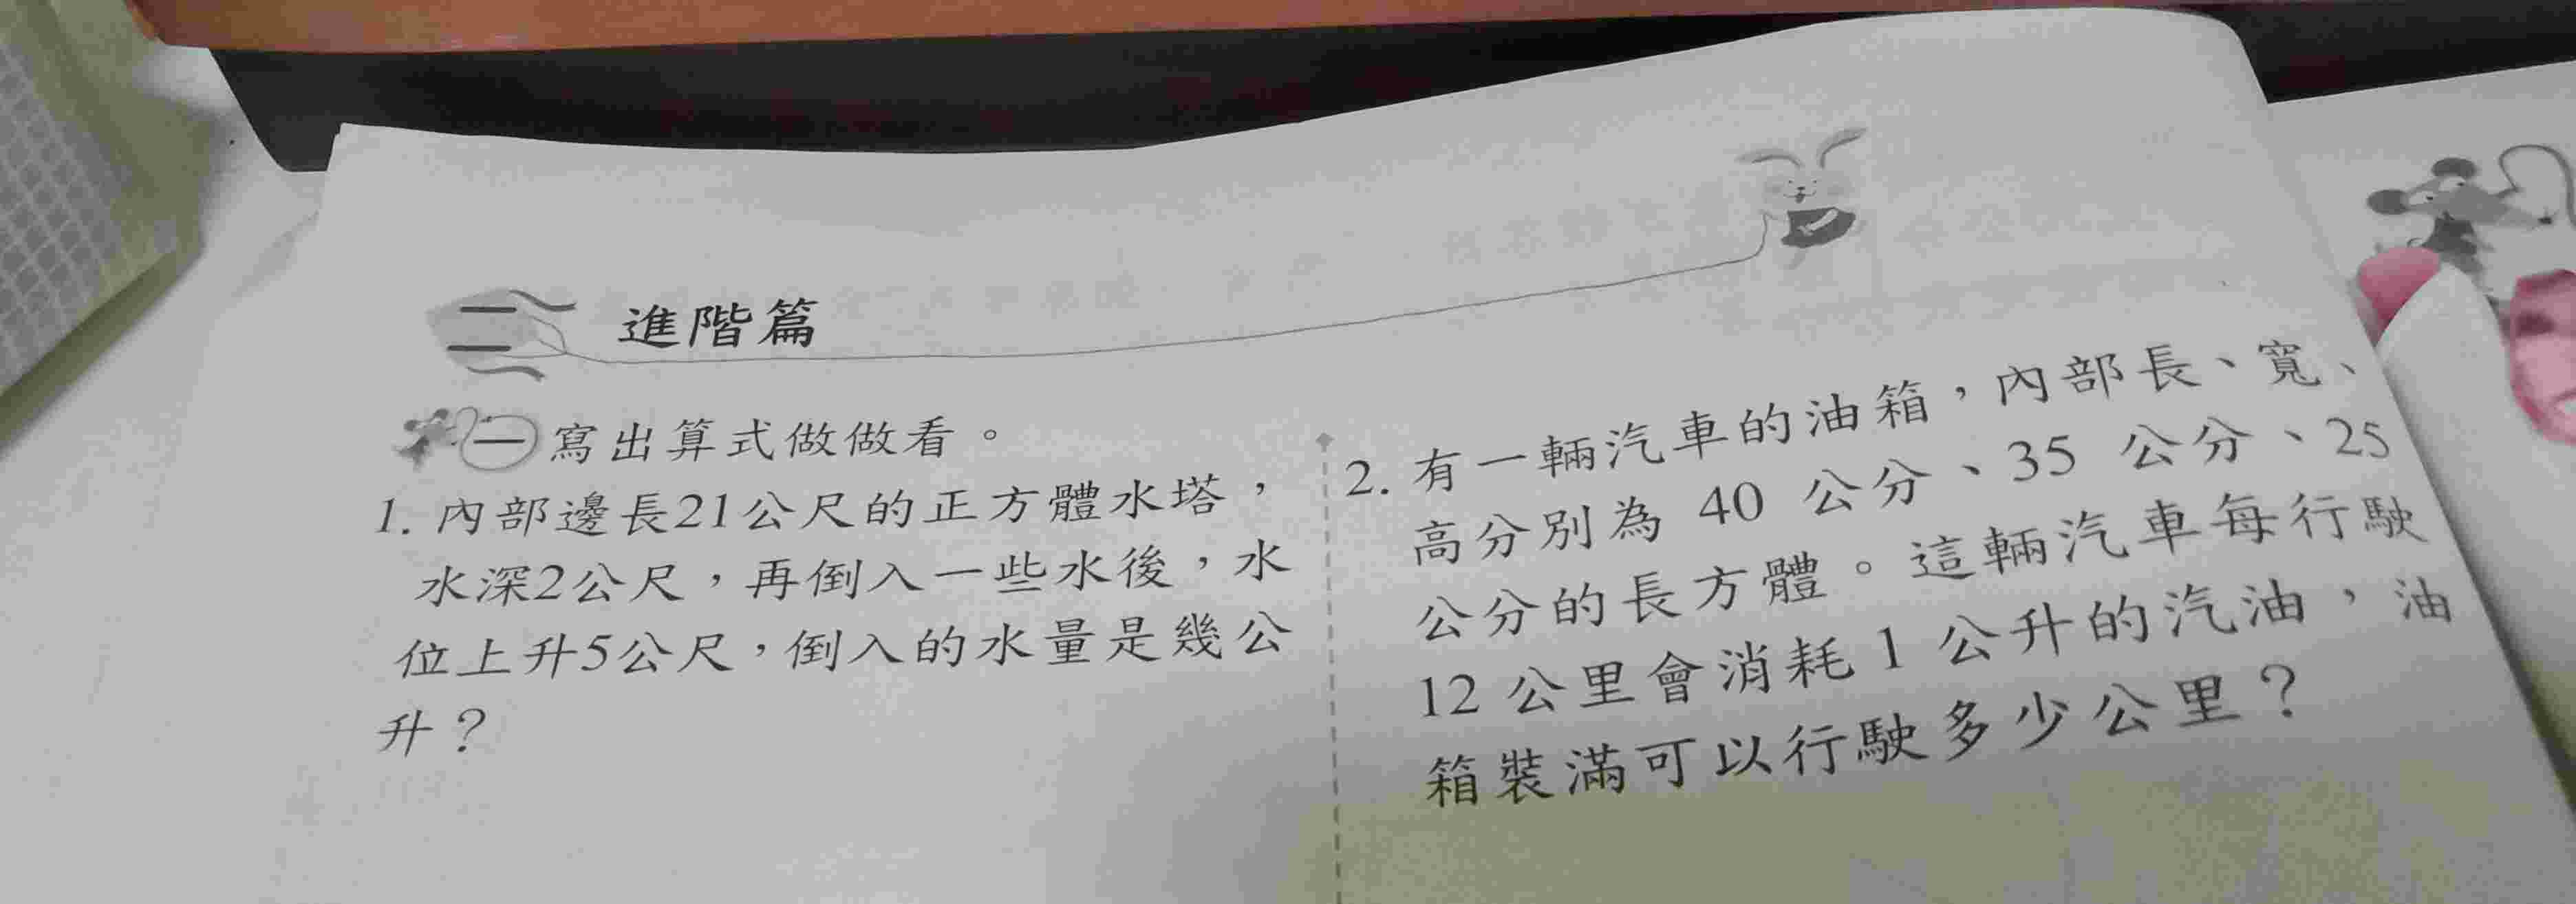 二 進階篇
一 寫出算式做做看。
1. 內部邊長21公尺的正方體水塔，
水深2公尺，再倒入一些水後，水
位上升5公尺，倒入的水量是幾公
升？
2. 有一輛汽車的油箱，內部長、寬、
高分別為 40 公分、35 公分、25
公分的長方體。這輛汽車每行駛
12 公里會消耗 1 公升的汽油，油
箱裝滿可以行駛多少公里？